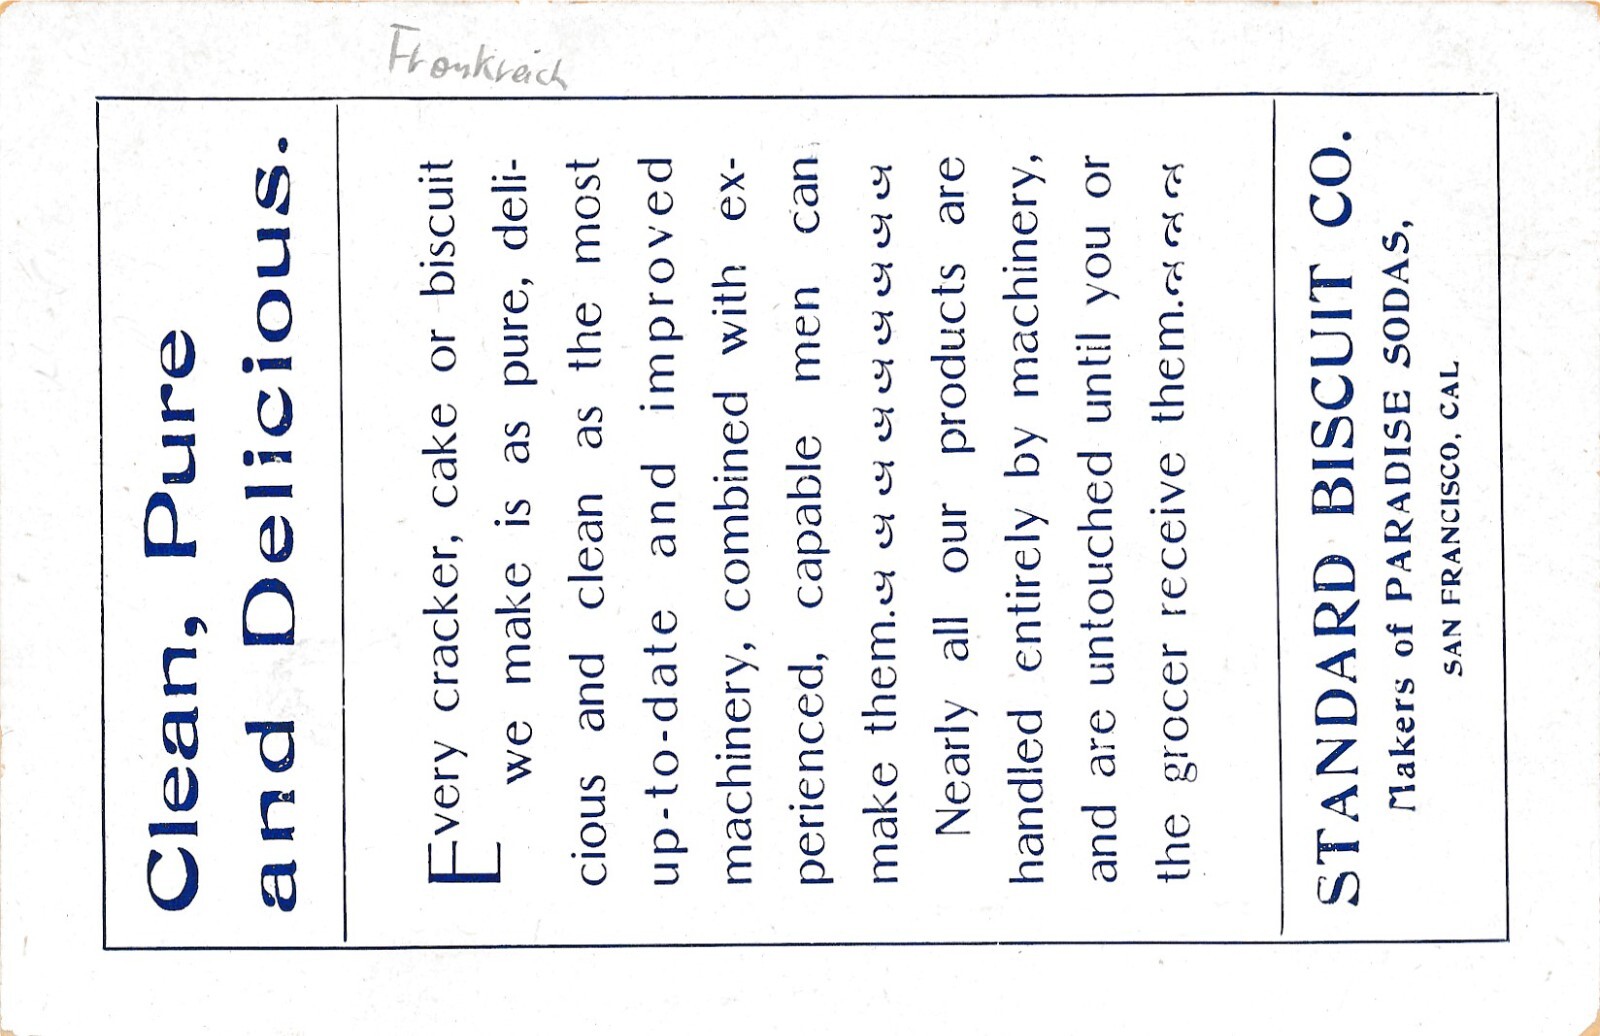 Frankreich
Clean, Pure
and Delicious.
Every cracker, cake or biscuit
we make is as pure, deli-
cious and clean as the most
up-to-date and improved
machinery, combined with ex-
perienced, capable men can
make them.
Nearly all our products are
handled entirely by machinery,
and are untouched until you or
the grocer receive them.
STANDARD BISCUIT CO.
Makers of PARADISE SODAS,
SAN FRANCISCO, CAL